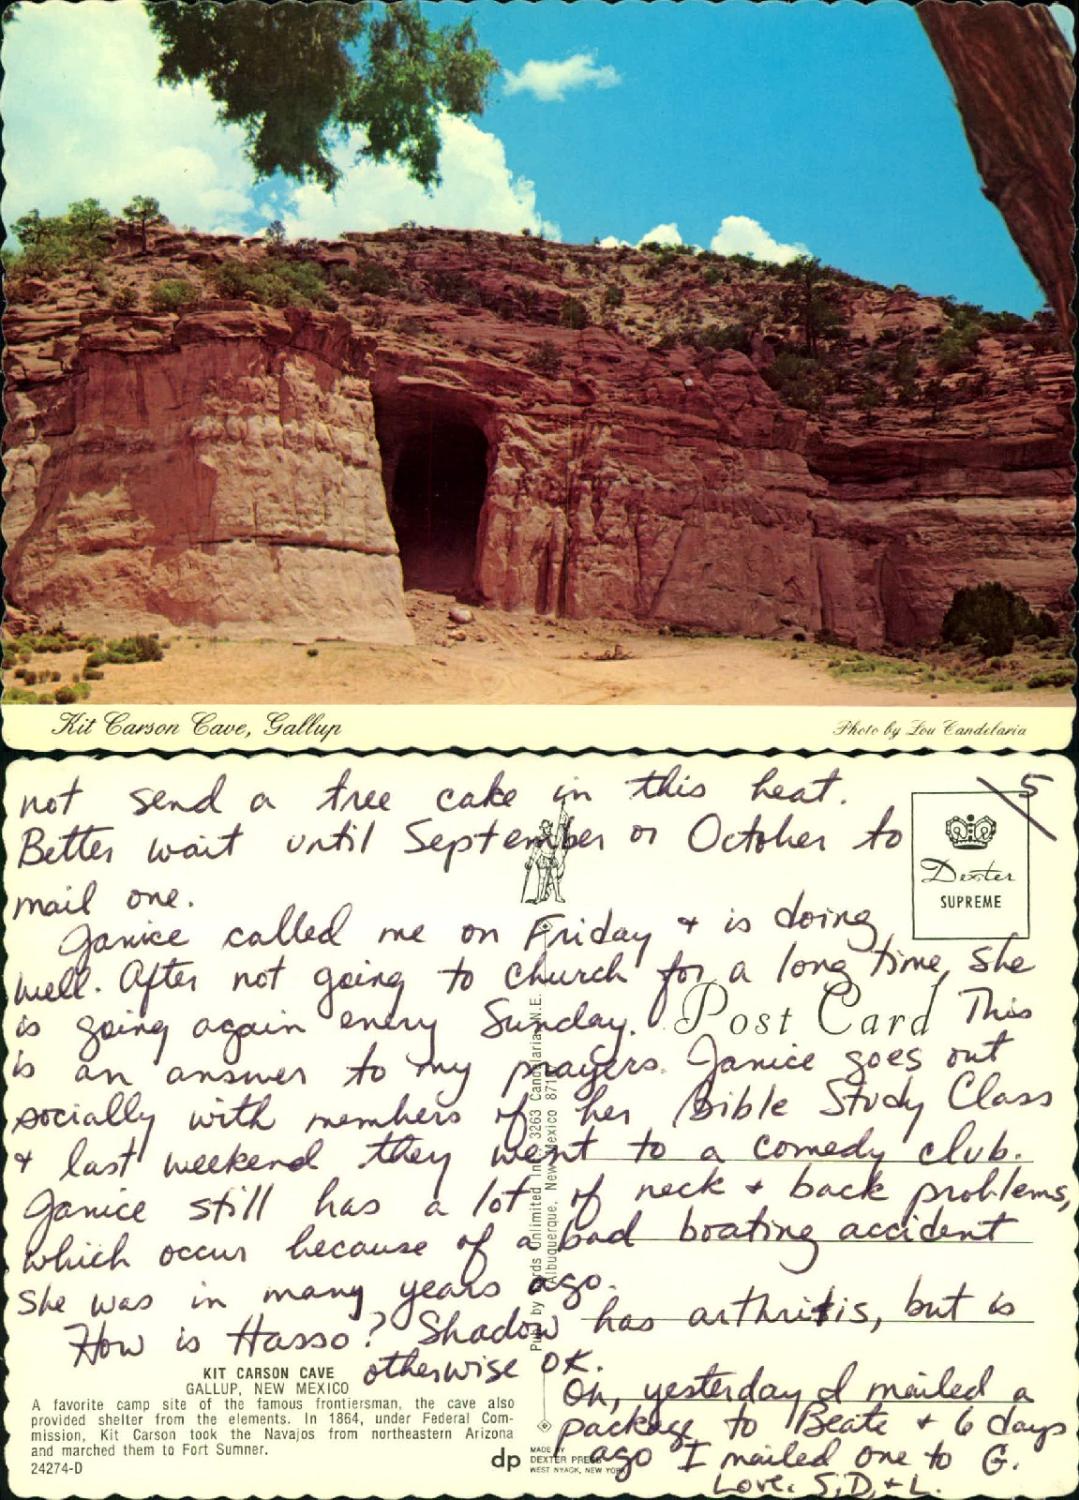 Kit Carson Cave, Gallup
Photo by Lou Candelaria
not send a tree cake in this heat.
5
Better wait until September or October to
mail one.
Dexter
SUPREME
Janice called me on Friday + is doing
well. After not going to church for a long time, she
is going again every Sunday. This
Post Card
is an answer to my prayers. Janice goes out
socially with members of her Bible Study Class
+ last weekend they went to a comedy club.
Janice still has a lot of neck + back problems,
which occur because of a bad boating accident
she was in many years ago.
How is Hasso? Shadow has arthritis, but is
otherwise OK.
Oh, yesterday I mailed a
package to Beate + 6 days
ago I mailed one to G.
Love, S, D, + L.
Pub. by Cards Unlimited Inc. 3263 Candelaria N.E.
Albuquerque, New Mexico 871
KIT CARSON CAVE
GALLUP, NEW MEXICO
A favorite camp site of the famous frontiersman, the cave also
provided shelter from the elements. In 1864, under Federal Com-
mission, Kit Carson took the Navajos from northeastern Arizona
and marched them to Fort Sumner.
24274-D
dp
MADE BY
DEXTER PRESS
WEST NYACK, NEW YORK